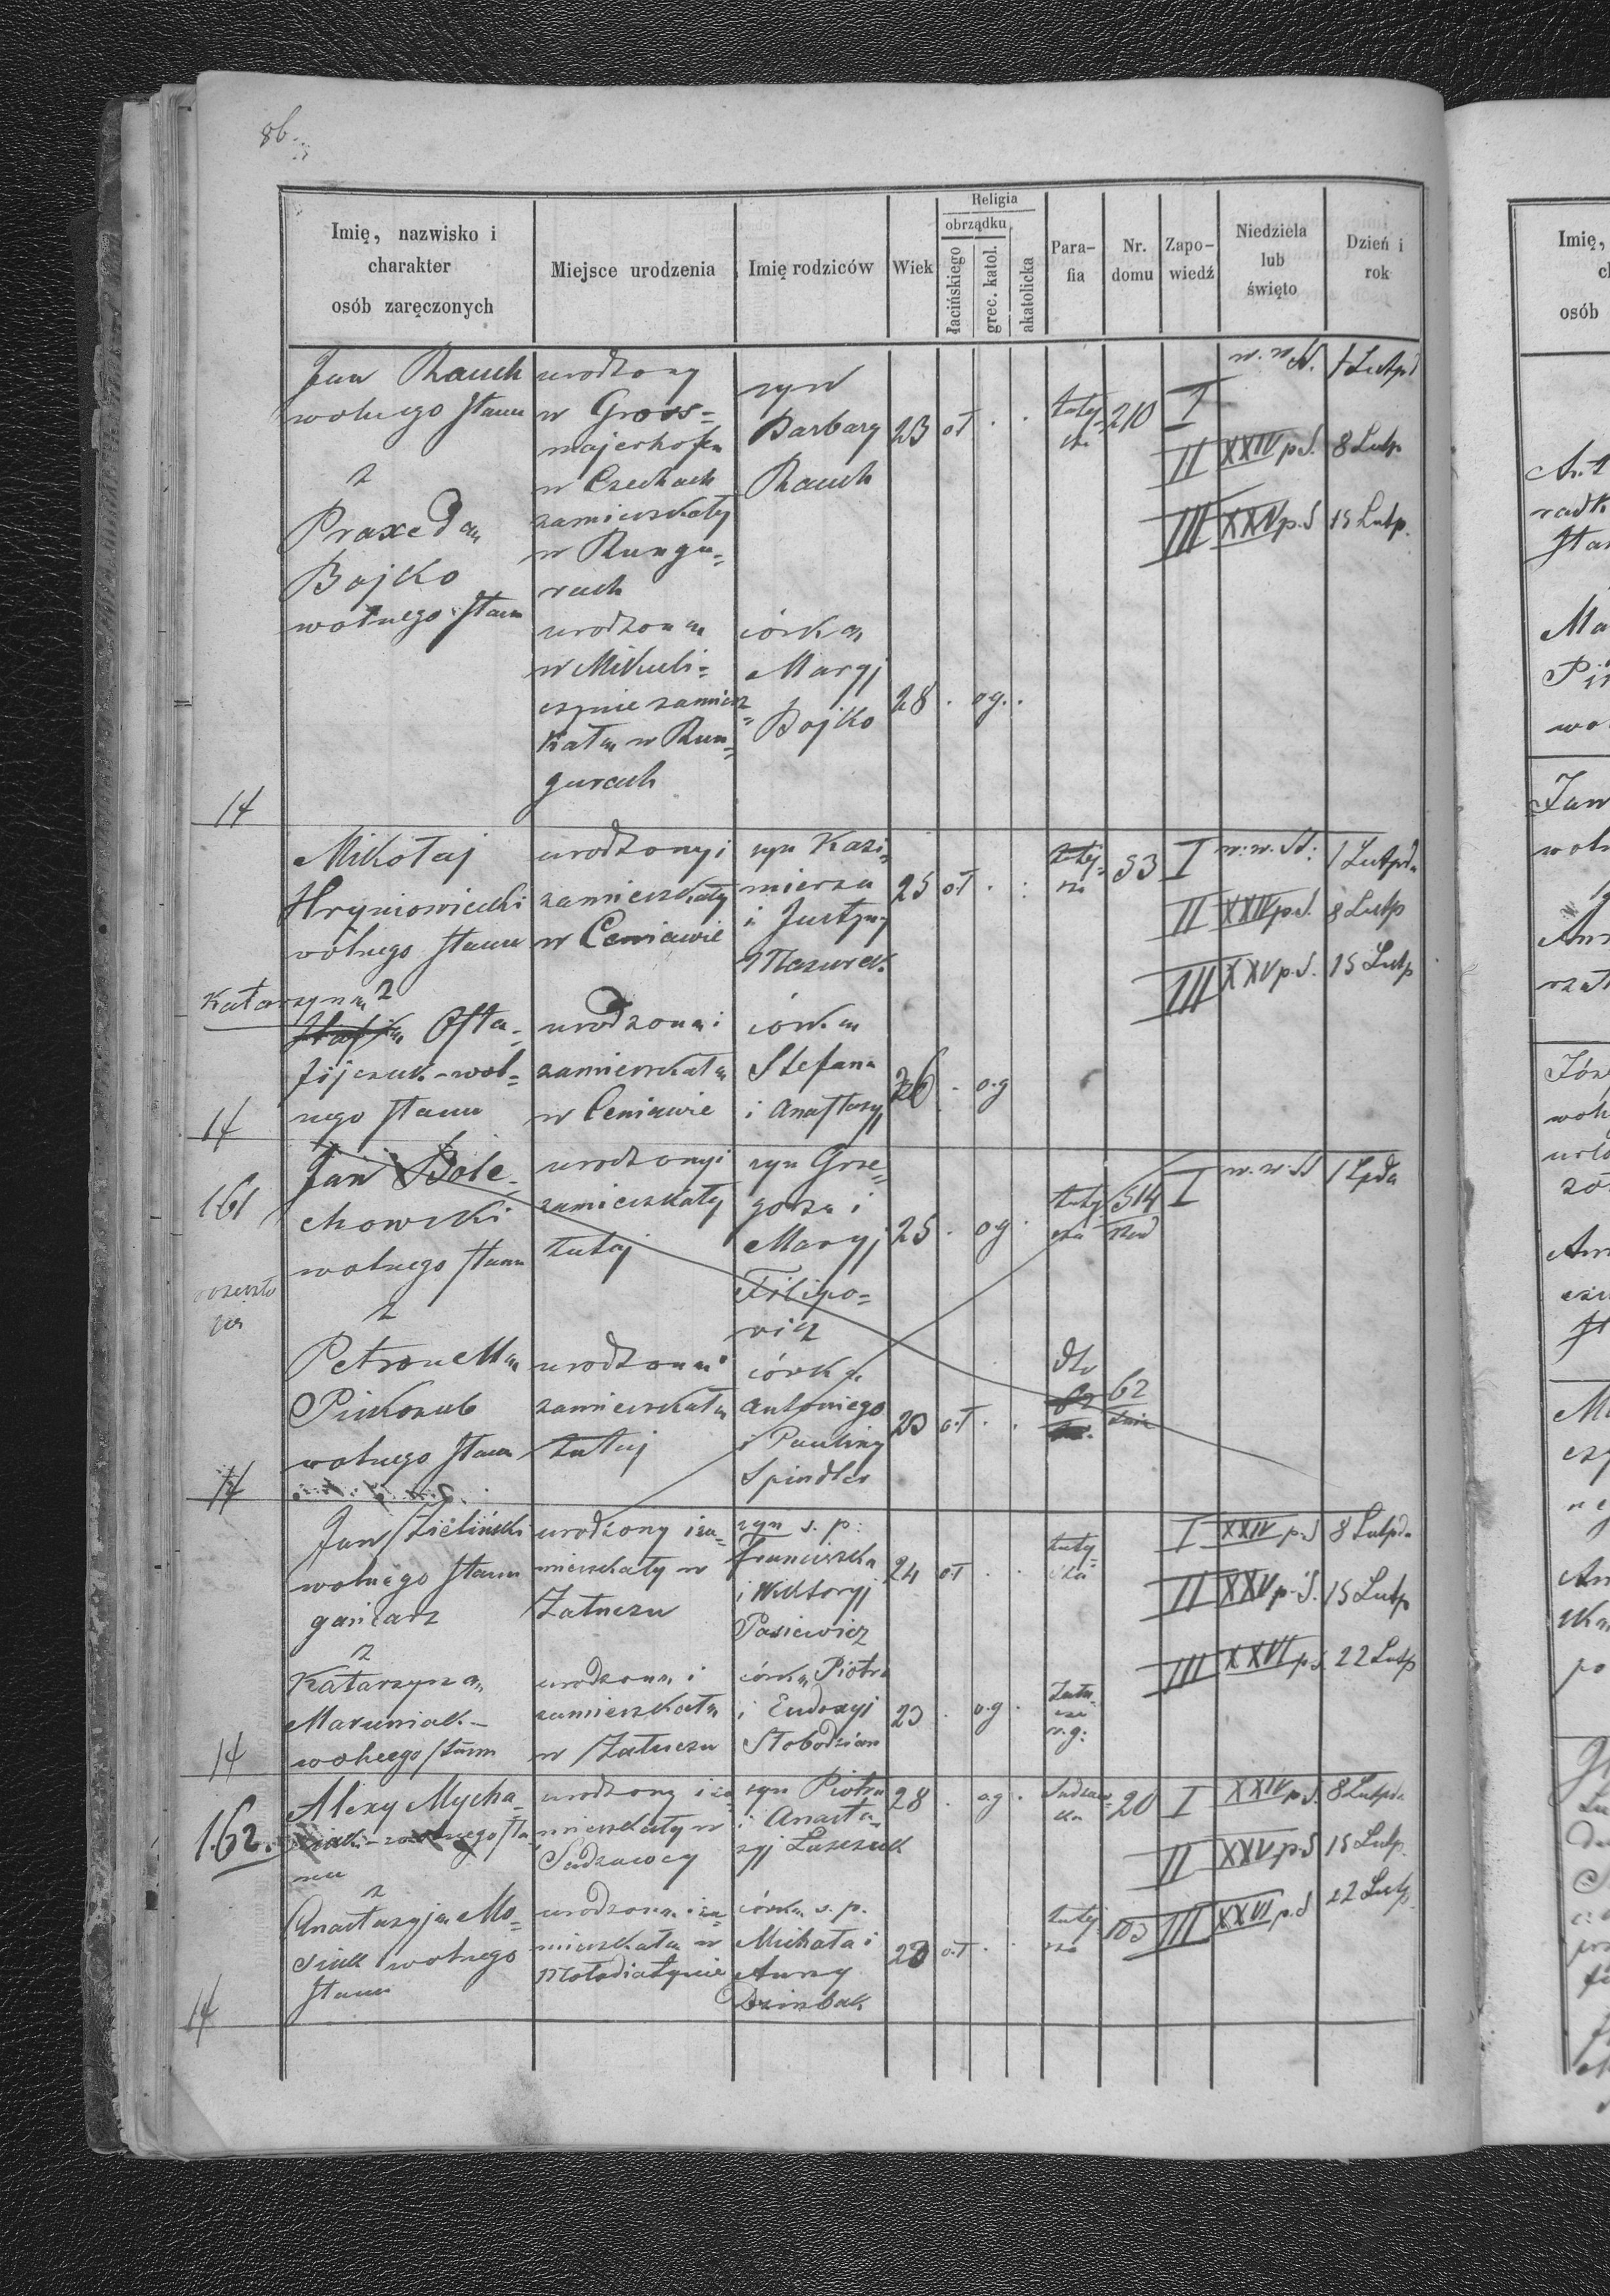 86.
Imię, nazwisko i charakter osób zaręczonych
Miejsce urodzenia
Imię rodziców
Wiek
Religia
obrządku
łacińskiego
grec. katol.
akatolicka
Para-
fia
Nr.
domu
Zapo-
wiedź
Niedziela
lub
święto
Dzień i
rok
Jan Rauch
wolnego stanu
z
Praxeda
Bojko
wolnego stanu
urodzony
w Gross=
majerhofen
w Czechach
zamieszkały
w Rungu=
rach
urodzona
w Mikuli=
czynie zamiesz=
kała w Run=
gurach
syn
Barbary
Rauch
córka
Maryj
Bojko
23 oł . .
28 . og. .
tutej
sza
210
I w. w. ŚŚ. 1 Listpd
II XXIV p.S. 8 Listp
III XXV p.S 15 Listp.
14
Mikołaj
Hryniowiecki
wolnego stanu
z
Katarzyna
Osta=
fijczuk - wol=
nego stanu
urodzony i
zamieszkały
w Ceniawie
urodzona i
zamieszkała
w Ceniawie
syn Kazi=
mierza
i Justyny
Mazurek
córka
Stefana
i Anastazyj
25 oł . :
26 . o.g
tutej
sza
53
I w. w. ŚŚ. 1 Listpda
II XXIV p.S. 8 Listp
III XXV p.S. 15 Listp
14
161
Jan Bole=
chowski
wolnego stanu
z
Petronella
Pikozub
wolnego stanu
urodzony i
zamieszkały
tutaj
urodzona i
zamieszkała
tutaj
syn Grze=
gorza i
Maryj
Filipo=
wicz
córka
Antoniego
i Pauliny
Spindler
25 . og .
20 o.ł . .
tutej
sza
514
dto
62
I w. w. ŚŚ 1 Lpda
14
Jan Zieliński
wolnego stanu
garncarz
z
Katarzyna
Maruniak -
wolnego stanu
urodzony i za=
mieszkały w
Załuczu
urodzona i
zamieszkała
w Załuczu
syn s. p.
Franciszka
i Wiktoryj
Pasiewicz
córka Piotra
i Eudoxyj
Słobodzian
24 o.ł . .
23 . o.g .
tutej=
sza
Zału=
cze
r. g.
I XXIV p.S 8 Listpda
II XXV p.S. 15 Listp
III XXVI p.S. 22 Listp
14
162.
Alexy Mycha=
wolnego sta
nu
z
Anastazyja Mo=
siuk wolnego
stanu
urodzony i za=
mieszkały w
Sadzawcy
urodzona i za=
mieszkała w
Mołodiatynie
syn Piotra
i Anasta=
zyj Łaszczuk
córka s. p.
Michała i
Anny
Dzinbak
28 . o.g .
o.ł . .
Sadzaw=
ka
20
tutej
sza
103
I XXIV p.S. 8 Listpda
II XXV p.S 15 Listp.
III XXVI p.S 22 Listp.
14
Imię,
osób